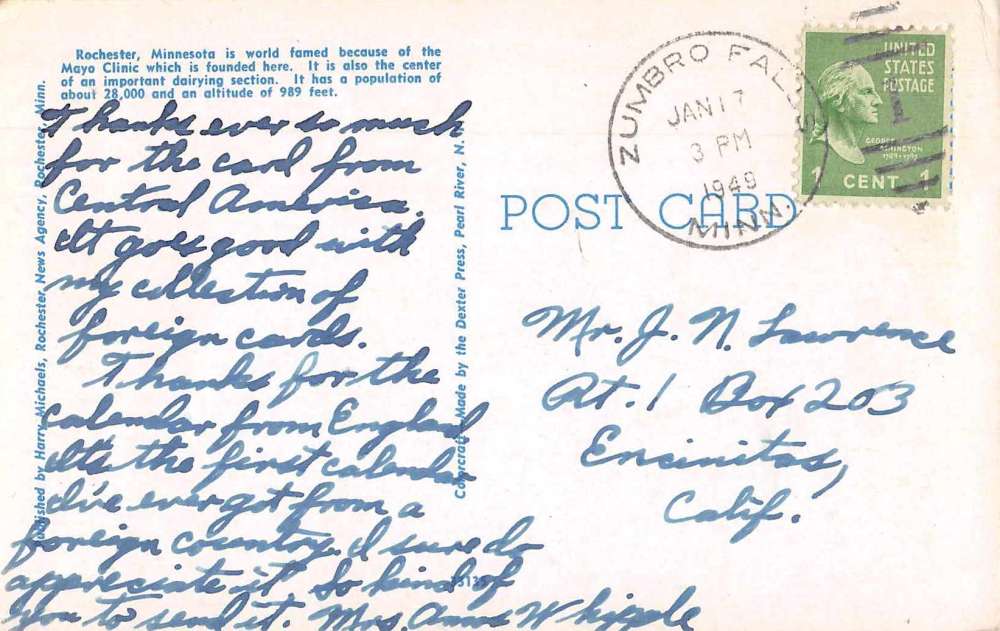 Rochester, Minnesota is world famed because of the
Mayo Clinic which is founded here. It is also the center
of an important dairying section. It has a population of
about 28,000 and an altitude of 989 feet.
Thanks ever so much
for the card from
Central America.
It goes good with
my collection of
foreign cards.
Thanks for the
calendar from England
It's the first calendar
I've ever got from a
foreign country. I sure do
appreciate it So kind of
you to send it. Mrs. Amos Whipple
Published by Harry Michaels, Rochester News Agency, Rochester, Minn.
Colorcraft Made by the Dexter Press, Pearl River, N.Y.
POST CARD
ZUMBRO FALLS
JAN 17
3 PM
1949
MINN.
UNITED
STATES
POSTAGE
1
GEORGE
WASHINGTON
1789-1797
1 CENT 1
Mr. J. N. Lawrence
Rt. 1 Box 203
Encinitas,
Calif.